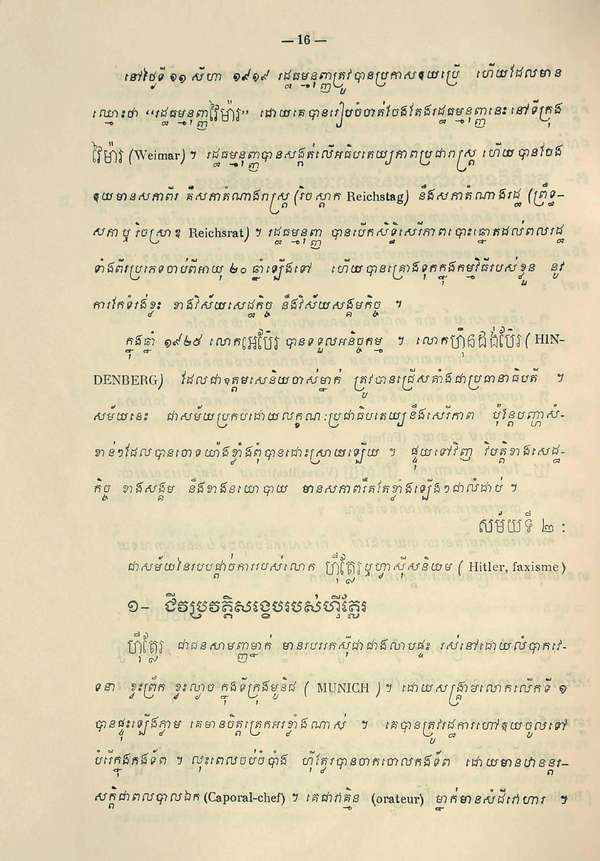 — 16 —
នៅថ្ងៃទី ១១ សីហា ១៩១៩ រដ្ឋធម្មនុញ្ញត្រូវបានប្រកាសឲ្យប្រើ ហើយដែលមាន
ឈ្មោះថា “រដ្ឋធម្មនុញ្ញវ៉ៃម៉ារ” ដោយគេបានរៀបចំចាត់ចែងតែងរដ្ឋធម្មនុញ្ញនេះ នៅទីក្រុង
វ៉ៃម៉ារ (Weimar) ។ រដ្ឋធម្មនុញ្ញបានសង្កត់លើអធិបតេយ្យភាពប្រជារាស្ត្រ ហើយបានចែង
ឲ្យមានសភាពីរ គឺសភាតំណាងរាស្ត្រ (រិចស្តាក Reichstag) នឹងសភាតំណាងរដ្ឋ (ព្រឹទ្ធ-
សភា ឬ រិចស្រាឌ Reichsrat) ។ រដ្ឋធម្មនុញ្ញ បានបើកសិទ្ធិសេរីភាពបោះឆ្នោតដល់ពលរដ្ឋ
ទាំងពីរប្រភេទចាប់ពីអាយុ ២០ ឆ្នាំឡើងទៅ ហើយបានគ្រោងទុកក្នុងកម្មវិធីរបស់ខ្លួន នូវ
ការកែទំរង់ខ្លះ ខាងវិស័យសេដ្ឋកិច្ច នឹងវិស័យសង្គមកិច្ច ។
ក្នុងឆ្នាំ ១៩២៥ លោកអេប៊ែរ បានទទួលអនិច្ចកម្ម ។ លោកហ៊ិនដង់ប៊ែរ (HIN-
DENBERG) ដែលជាឧត្តមសេនីយចាស់ម្នាក់ ត្រូវបានជ្រើសតាំងជាប្រធានាធិបតី ។
សម័យនេះ ជាសម័យប្រកបដោយលក្ខណៈប្រជាធិបតេយ្យនឹងសេរីភាព ប៉ុន្តែបញ្ហាសំ-
ខាន់ៗដែលបានចោទយ៉ាងខ្លាំងពុំបានដោះស្រាយឡើយ ។ ផ្ទុយទៅវិញ វិបត្តិខាងសេដ្ឋ-
កិច្ច ខាងសង្គម នឹងខាងនយោបាយ មានសភាពរឹតតែខ្លាំងឡើងៗជាលំដាប់ ។
សម័យទី ២ :
ជាសម័យនៃរបបផ្តាច់ការរបស់លោក ហ៊ីត្លែរ ឬហ្វាស៊ីសនិយម ( Hitler, faxisme )
១- ជីវប្រវត្តិសង្ខេបរបស់ហ៊ីត្លែរ
ហ៊ីត្លែរ ជាជនសាមញ្ញម្នាក់ មានរបររកស៊ីជាជាងលាបផ្ទះ រស់នៅដោយលំបាកវេ-
ទនា ខ្វះព្រឹក ខ្វះល្ងាច ក្នុងទីក្រុងមុនិដ ( MUNICH ) ។ ដោយសង្គ្រាមលោកលើកទី ១
បានផ្ទុះឡើងភ្លាម គេមានចិត្តត្រេកអរខ្លាំងណាស់ ។ គេបានត្រូវរដ្ឋការហៅឲ្យចូលទៅ
បំរើក្នុងកងទ័ព ។ លុះពេលចប់ចំបាំង ហ៊ីត្លែរបានចាកចោលកងទ័ព ដោយមានឋានន្តរ-
សក្តិជាពលបាលឯក (Caporal-chef) ។ គេជាវាគ្មិន (orateur) ម្នាក់មានសំដីវោហារ ។